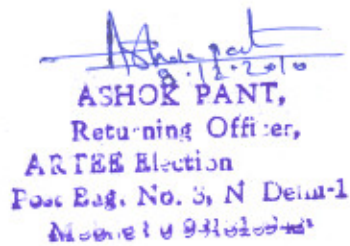 Ashok pant
9.12.2010
ASHOK PANT,
Returning Officer,
ARTEE Election
Post Bag. No. 3, N Delhi-1